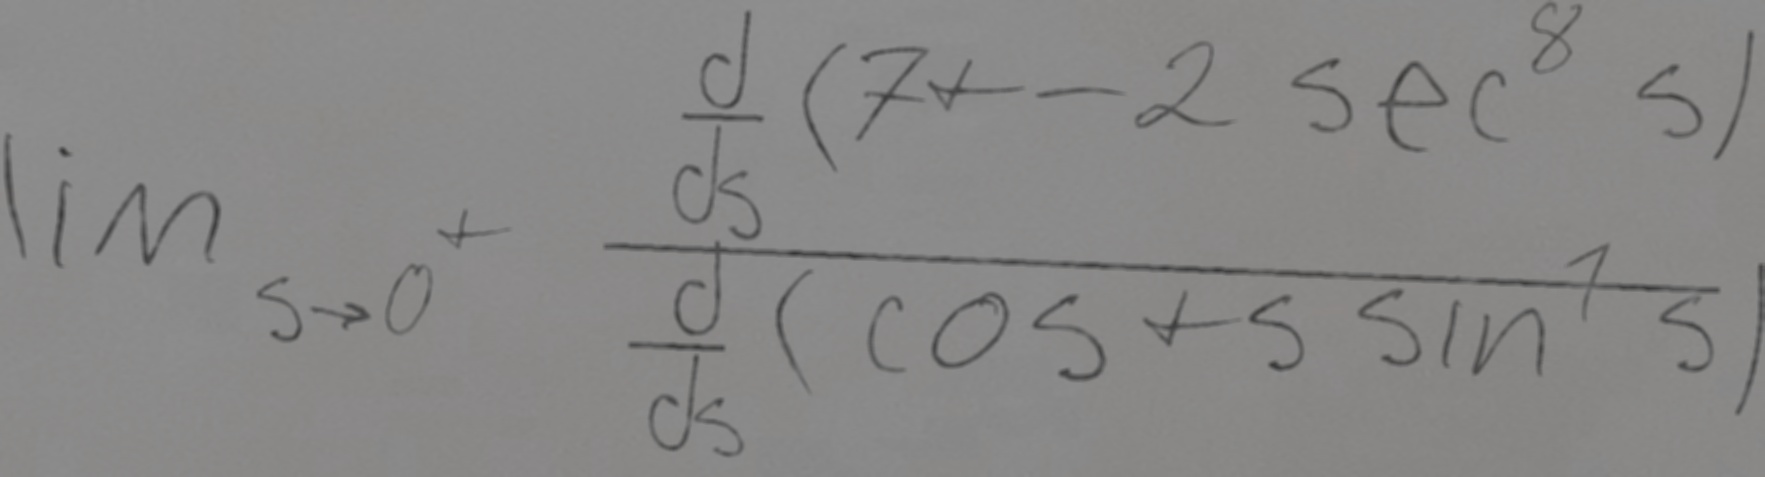 lim_{s→0^+} \frac{\frac{d}{ds}(7+-2 sec^8 s)}{\frac{d}{ds}(cos+s sin^1 s)}